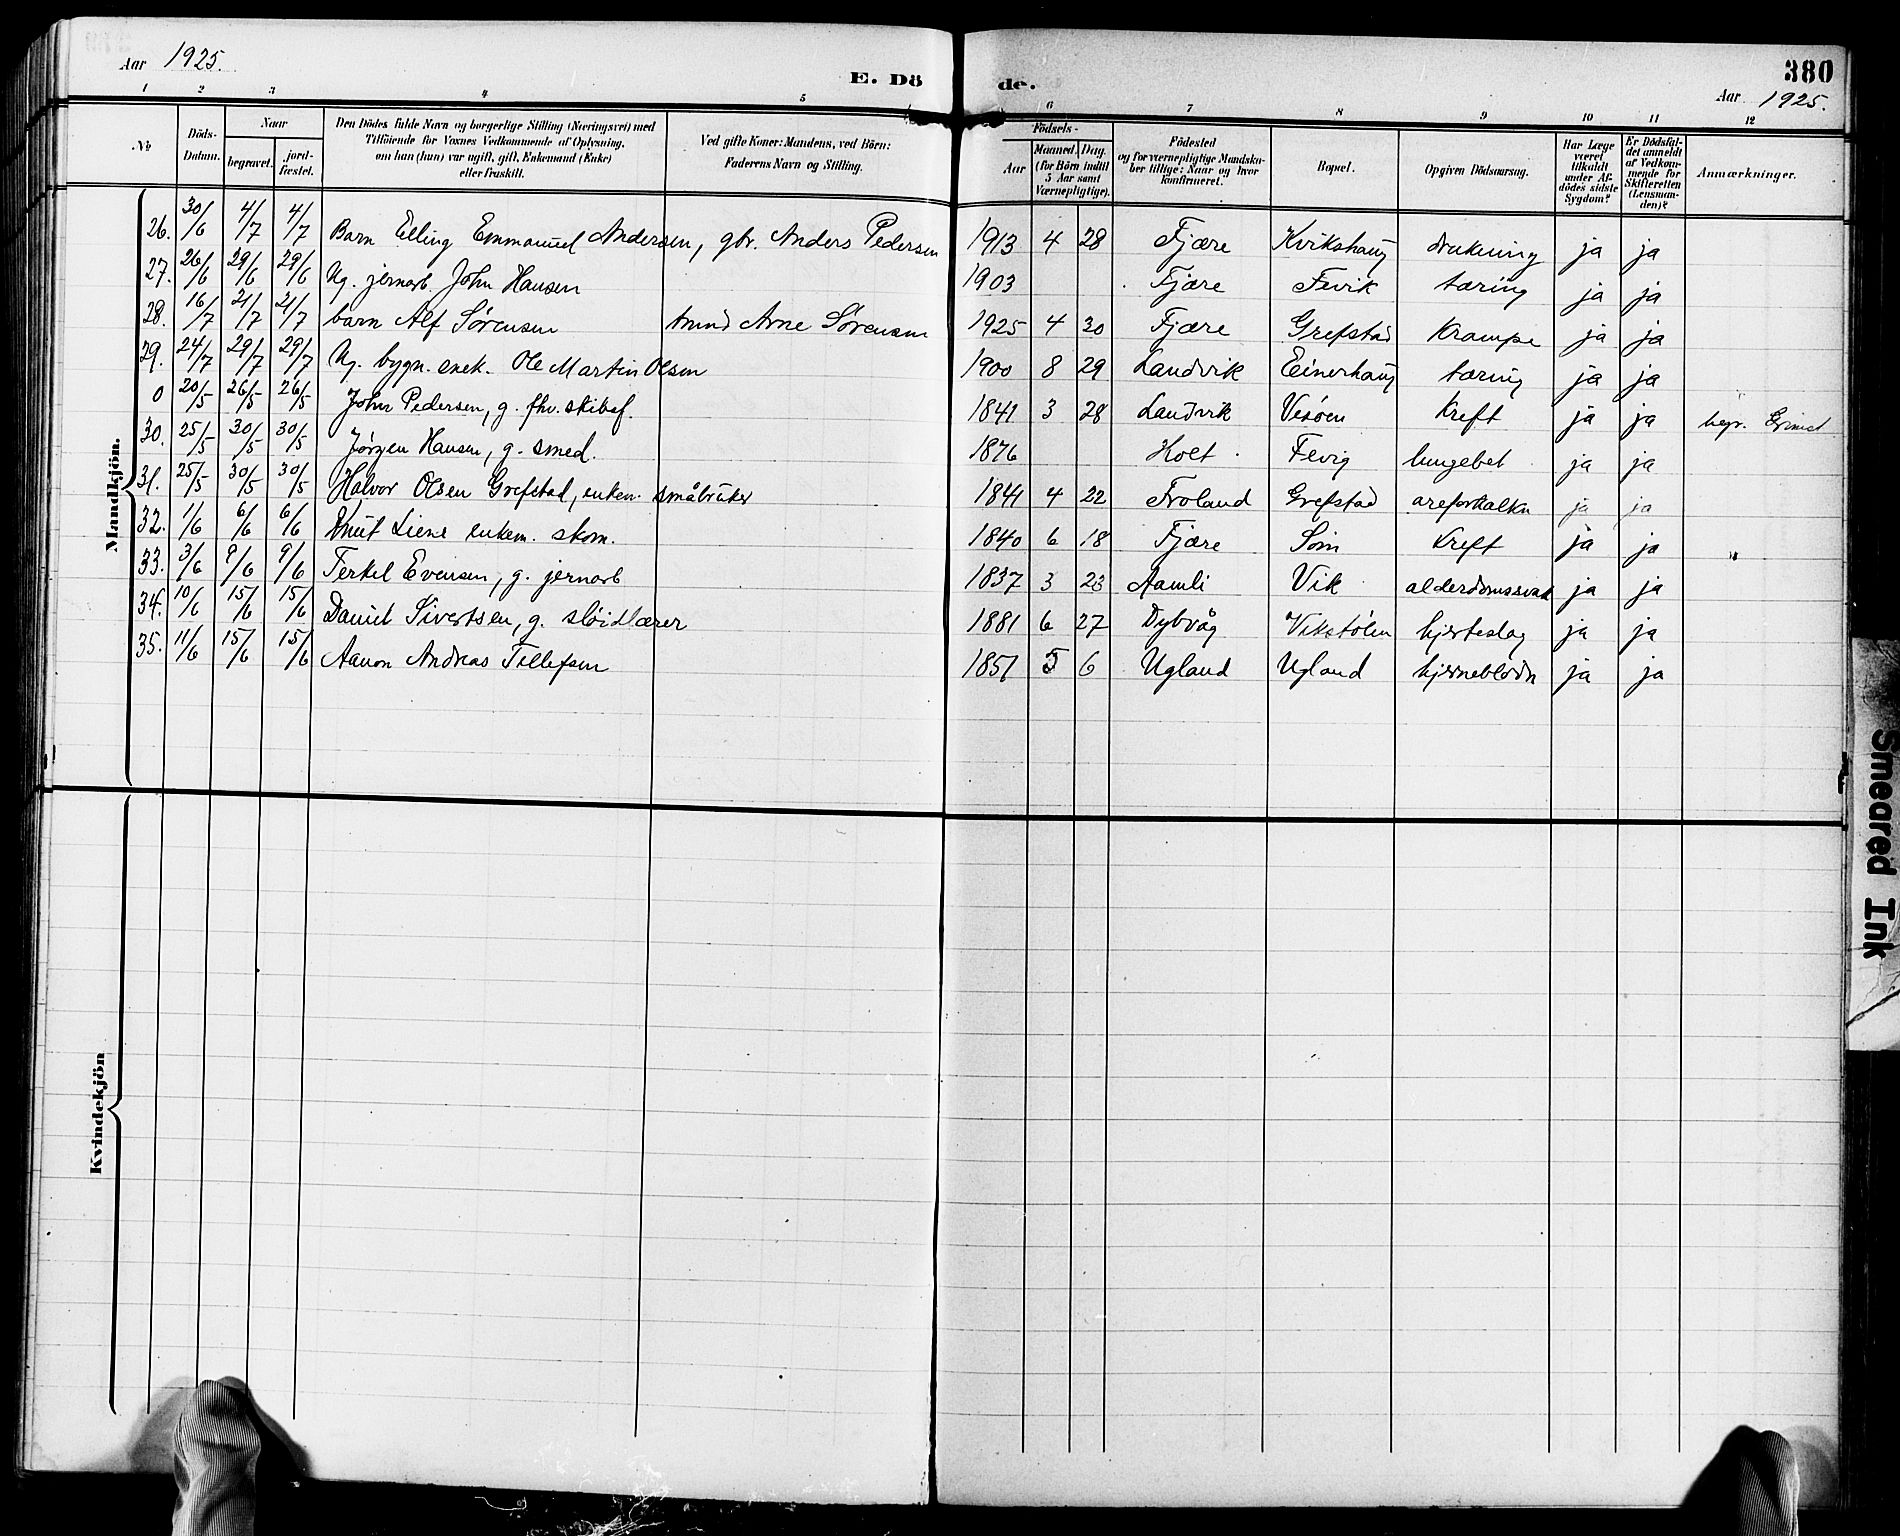 Aar 1925.
E. Dö
de.
380
Aar 1925.
1 2 3 4 5 6 7 8 9 10 11 12
No
Döds-
Datum.
Naar
begravet.
jord-
fæstet.
Den Dödes fulde Navn og borgerlige Stilling (Næringsvei) med
Tilföiende for Voxnes Vedkommende af Oplysning,
om han (hun) var ugift, gift, Enkemand (Enke)
eller fraskilt.
Ved gifte Koner: Mandens, ved Börn:
Faderens Navn og Stilling.
Födsels-
Aar
Maaned. Dag.
(for Börn indtil
5 Aar samt
Værnepligtige).
Födested
og for værnepligtige Mandska-
ber tillige: Naar og hvor
konfirmeret.
Bopæl.
Opgiven Dödsaarsag.
Har Læge
været
tilkaldt
under Af-
dödes sidste
Sygdom?
Er Dödsfal-
det anmeldt
af Vedkom-
mende for
Skifteretten
(Lensman-
den)?
Anmærkninger.
Mandkjön.
26. 30/6 4/7 4/7 Barn Elling Emmanuel Andersen, gbr. Anders Pedersen 1913 4 28 Fjære Kvikshaug drukning ja ja
27. 26/6 29/6 29/6 Ug. jernarb. John Hansen 1903 Fjære Fevik tæring ja ja
28. 16/7 21/7 21/7 barn Alf Sørensen Arne Sørensen 1925 4 30 Fjære Grefstad Krampe ja ja
29. 24/7 29/7 29/7 Ug. bygn. snek. Ole Martin Olsen 1900 8 29 Landvik Einerhaug tæring ja ja
0 20/5 26/5 26/5 John Pedersen, g. fhv. skibsf. 1841 3 28 Landvik Vesøen Kreft ja ja begr. Grimst
30. 25/5 30/5 30/5 Jørgen Hansen, g. smed. 1876 Holt Fevig lungebet ja ja
31. 25/5 30/5 30/5 Halvor Olsen Grefstad, enkem. småbruker 1841 4 22 Froland Grefstad areforkalkn ja ja
32. 1/6 6/6 6/6 Knut Liene enkem. skom. 1840 6 18 Fjære Søm Kreft ja ja
33. 3/6 9/6 9/6 Terkel Evensen, g. jernarb 1837 3 23 Aamli Vik alderdomssvak ja ja
34. 10/6 15/6 15/6 Daniel Sivertsen, g. sløidlærer 1881 6 27 Dybvåg Vikstølen hjerteslag ja ja
35. 11/6 15/6 15/6 Aanon Andreas Tellefsen 1851 5 6 Ugland Ugland hjerneblødn ja ja
Kvindekjön
Smeared Ink